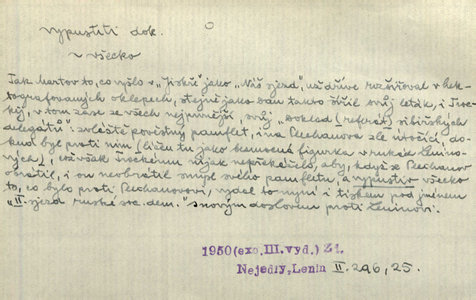 vypustiti dok.
~ všecko
Jak Martov to, co vyšlo v „Jiskře" jako „Náš sjezd", už dříve rozšiřoval v hek-
tografovaných oklepech, stejně jako sám takto šířil svůj leták, i Troc-
kij, v tom zase ze všech nejpilnější, svůj „Doklad (referát) sibiřských
delegátů" zvláště pověstný pamflet, i na Plechanova zle útočící, do-
kud byl proti nim (líčen tu jako bezmocná figurka v rukou Lenino-
vých), což však Trockému nijak nepřekáželo, aby, když se Plechanov
obrátil, i on neobrátil smysl svého pamfletu, a vypustiv všecko
to, co bylo proti Plechanovovi, vydal to nyní i tiskem pod jménem
„II. sjezd ruské soc. dem." s novým doslovem proti Leninovi.
1950 (exc. III. vyd.) Zt.
Nejedlý, Lenin II. 296, 25.